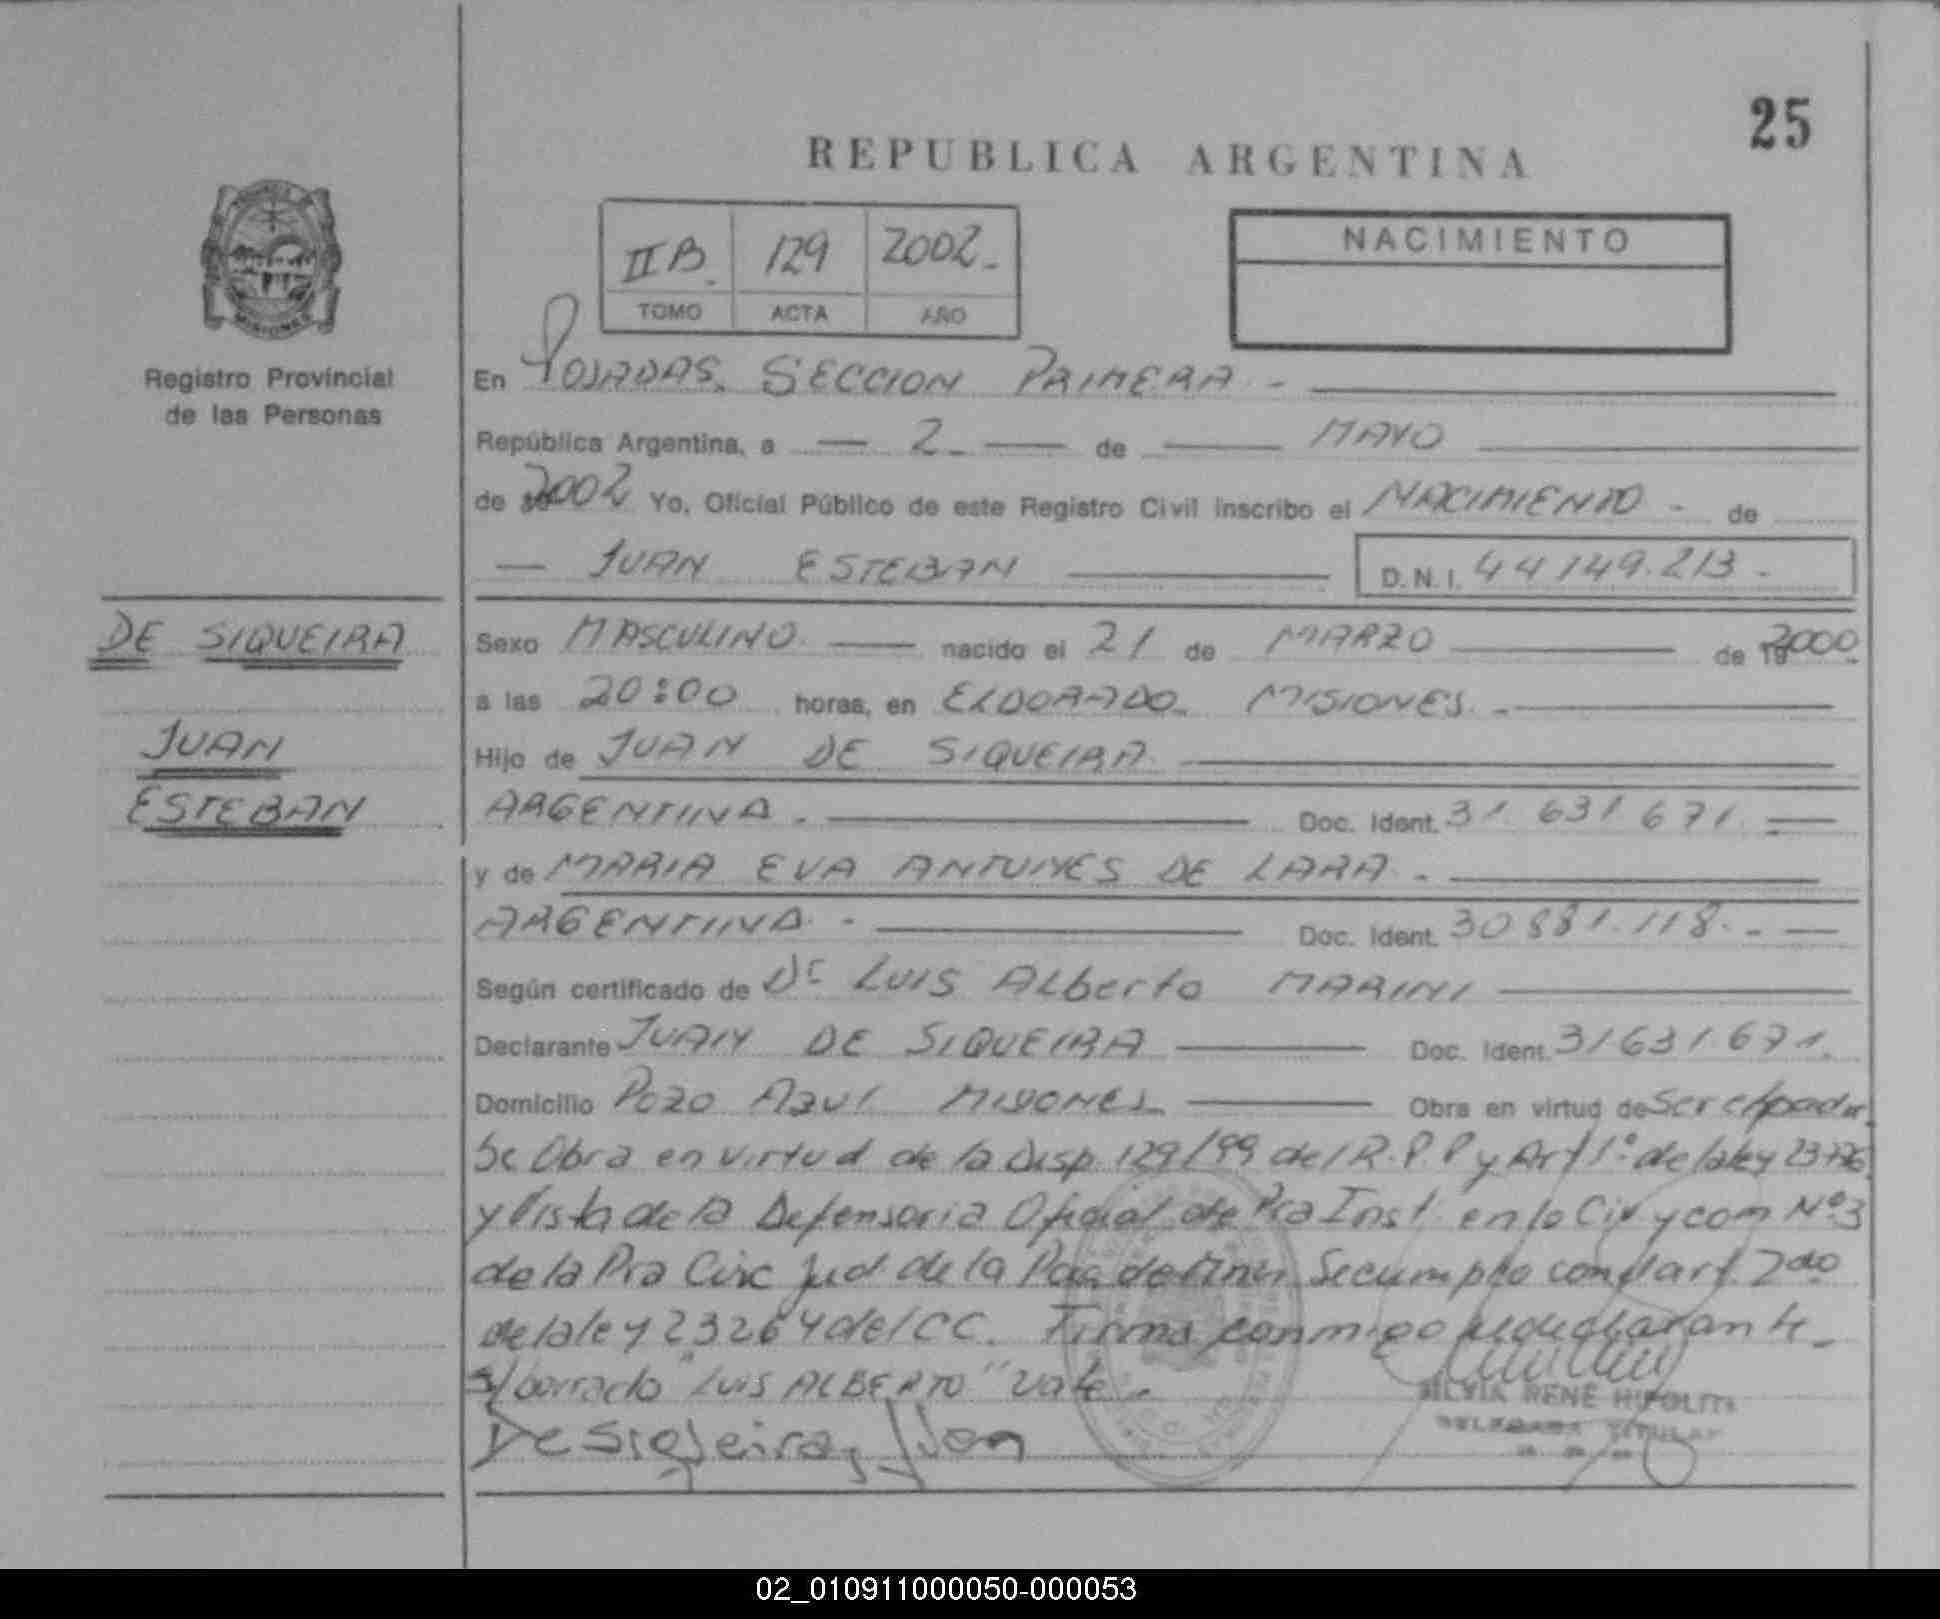 25
REPUBLICA ARGENTINA
II B. 129 2002.
TOMO ACTA AÑO
NACIMIENTO
MISIONES
Registro Provincial
de las Personas
En POSADAS. SECCION PRIMERA.
República Argentina, a 2. de MAYO
de 2002 Yo, Oficial Público de este Registro Civil inscribo el NACIMIENTO - de
JUAN ESTEBAN D.N.I. 44149.213.
DE SIQUEIRA
JUAN
ESTEBAN
Sexo MASCULINO. nacido el 21 de MARZO de 2000.
a las 20:00 horas, en ELDORADO. MISIONES.
Hijo de JUAN DE SIQUEIRA.
ARGENTINA. Doc. Ident. 31.631.671.
y de MARIA EVA ANTUNES DE LARA.
ARGENTINA. Doc. Ident. 30881.118.
Según certificado de Dr LUIS ALberto MARINI
Declarante JUAN DE SIQUEIRA Doc. Ident. 31631671.
Domicilio POZO AZUL MISIONES Obra en virtud de Ser el padre.
Se Obra en virtud de la Disp. 129/99 del R.P.P y Art 1º de la ley 23776
y Vista de la Defensoria Oficial de Pra Inst en lo Civ y com Nº3
de la Pra Circ Jud de la Pcia de Mnes Se cumplio con el art 2do
de la ley 23264 del CC. Firma conmigo el declarante.
s/borrado "LUIS ALBERTO" vale.
De Siqueira, Juan
SILVIA RENE HIPOLITI
DELEGADA TITULAR
02_010911000050-000053